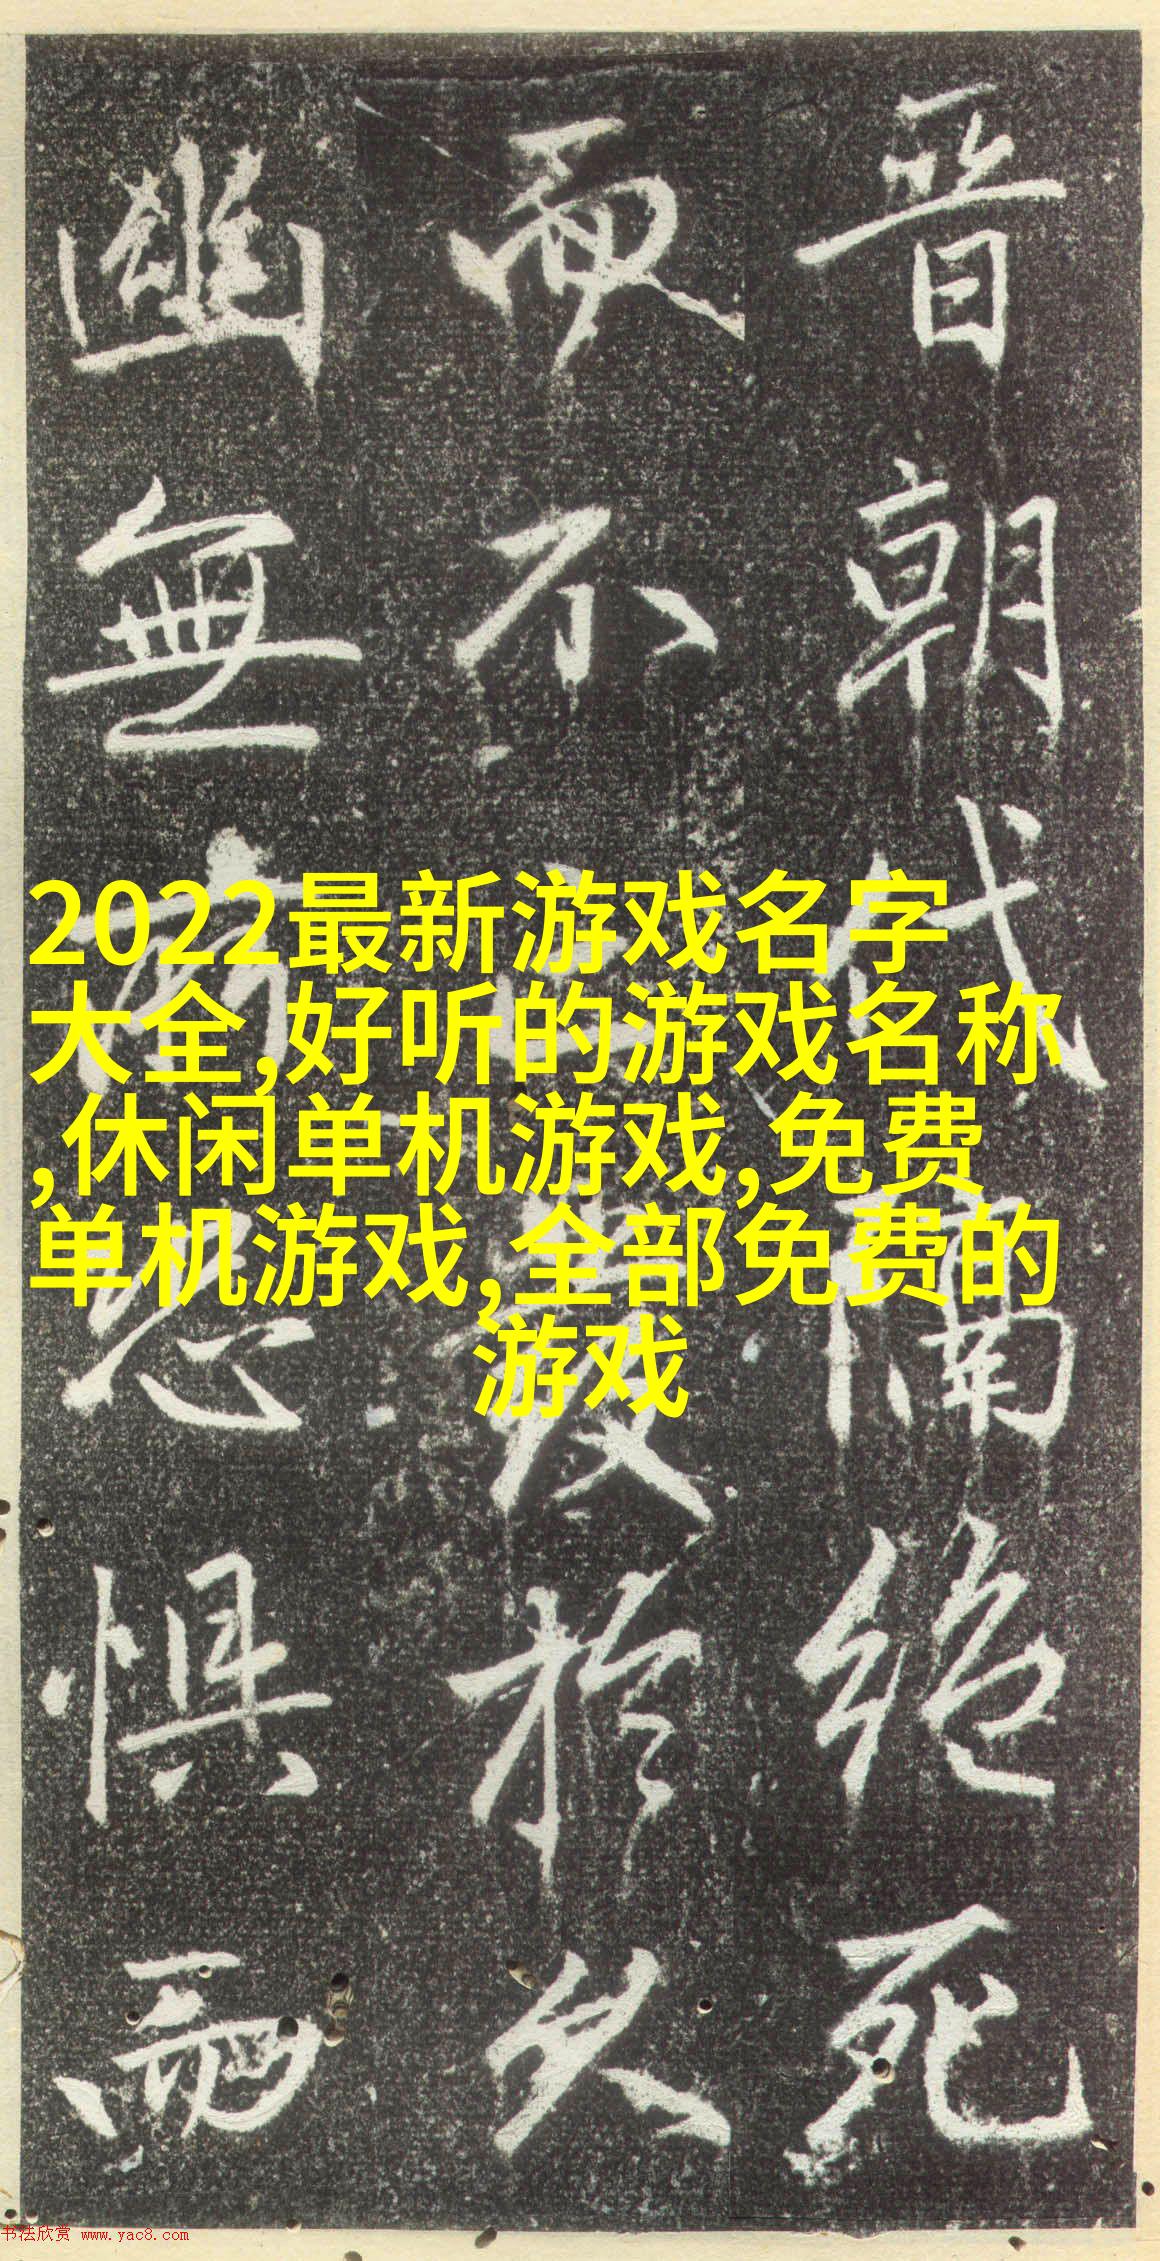 晋朝代隔絶死
而不於久
幽無惧而
2022最新游戏名字
大全,好听的游戏名称
,休闲单机游戏,免费
单机游戏,全部免费的
游戏
书法欣赏 www.yac8.com